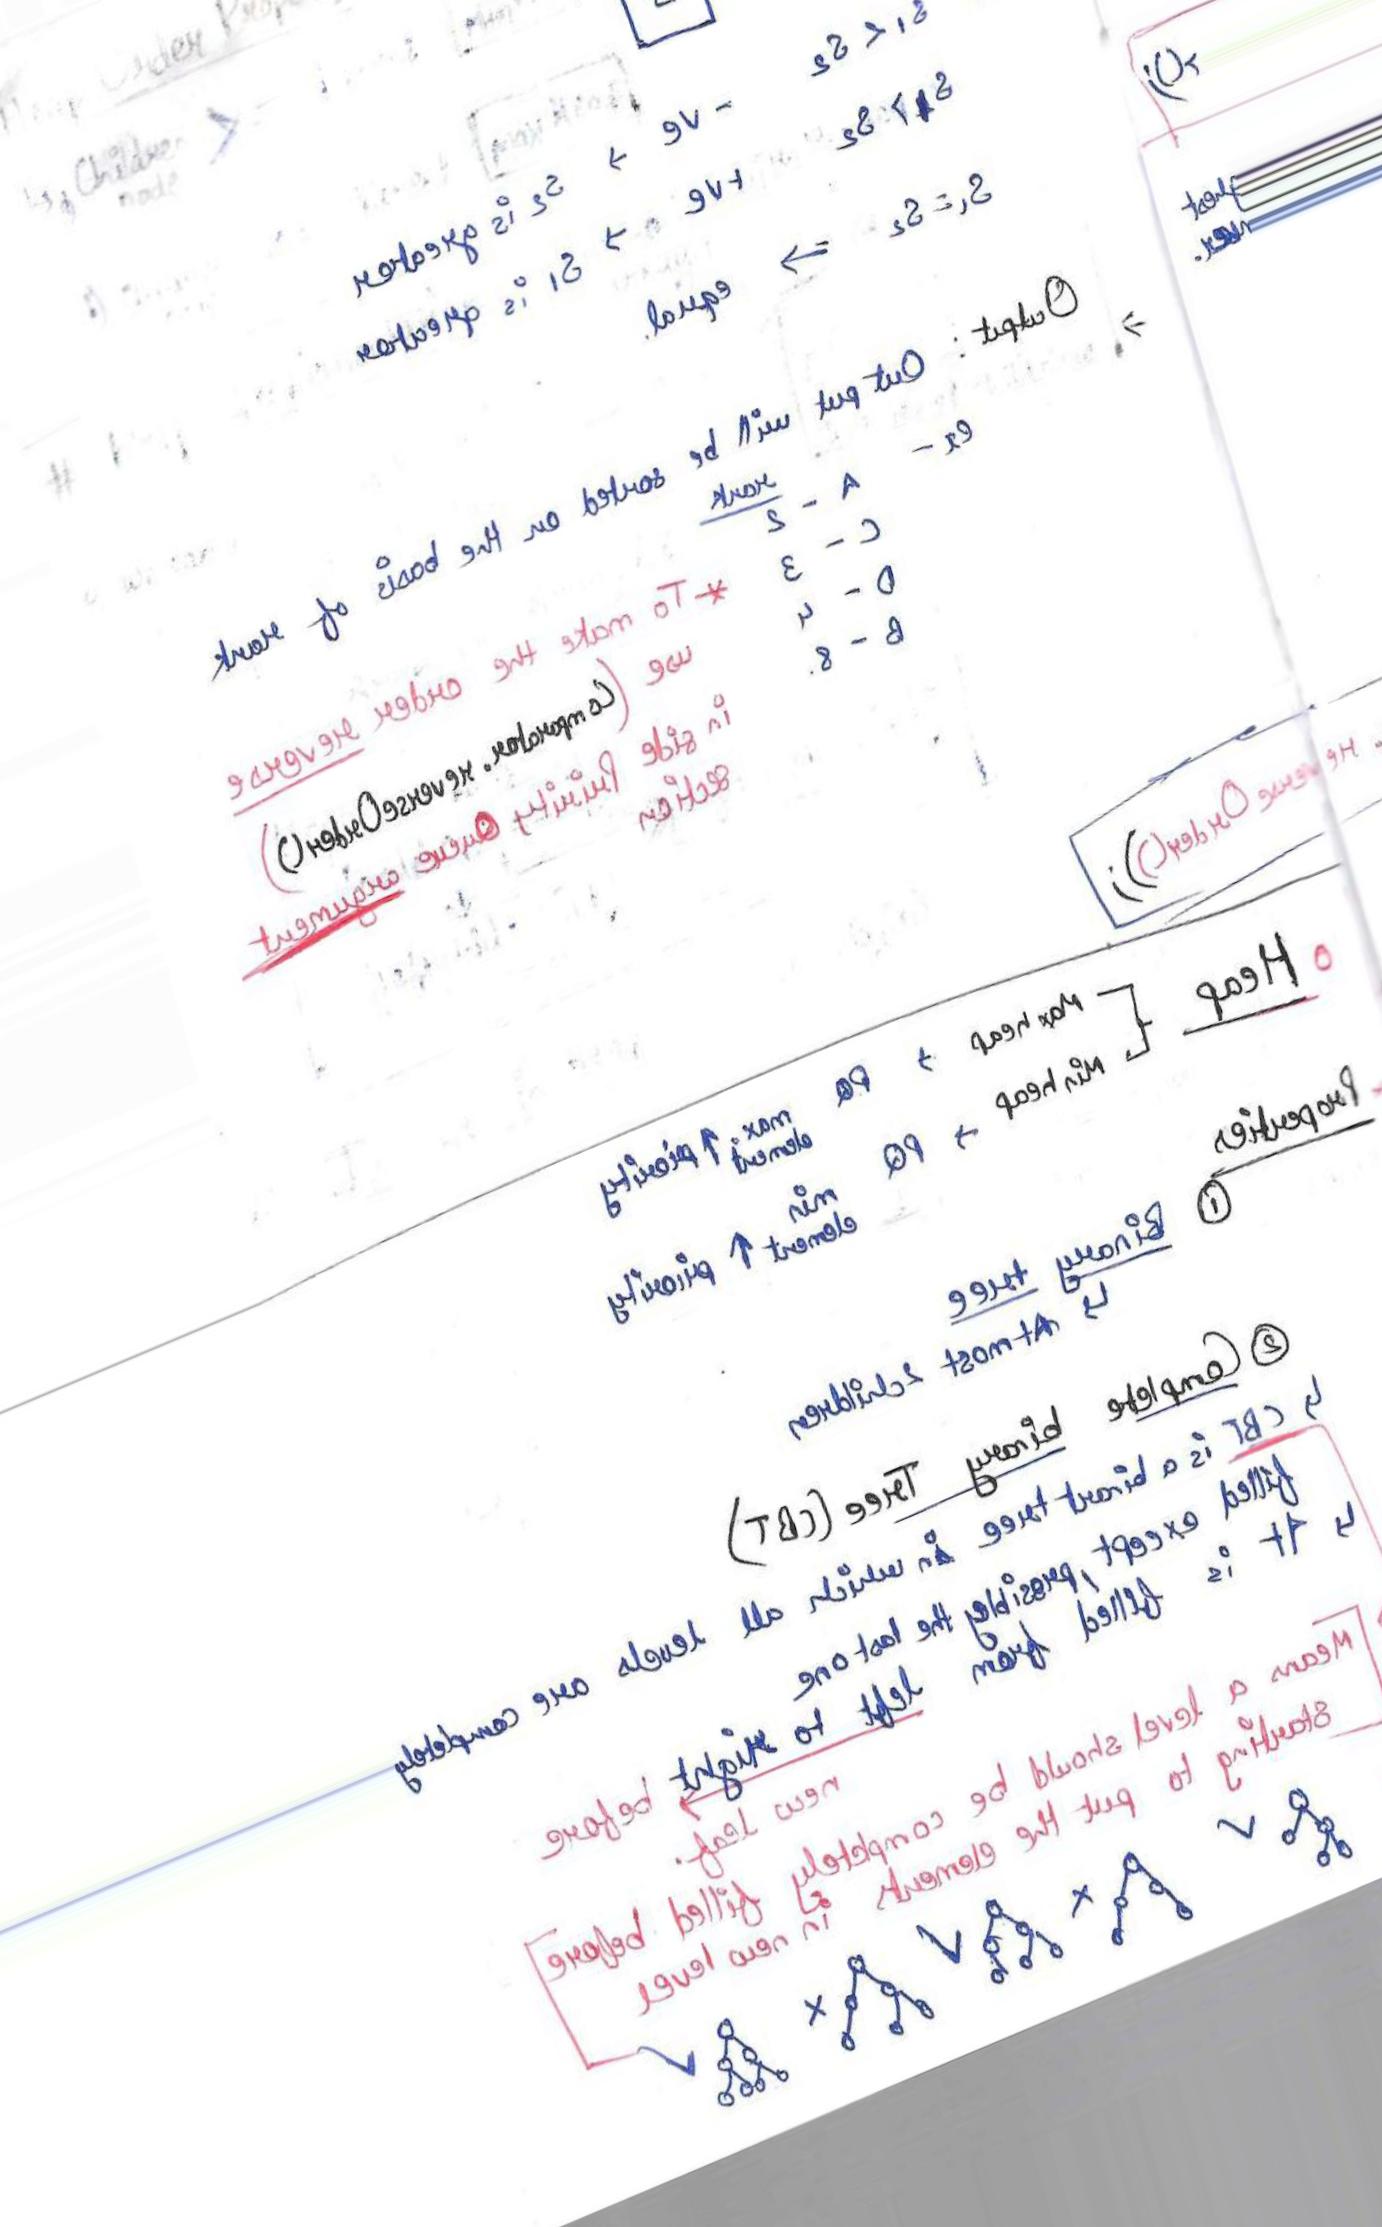 S1 < S2 - ve → S2 is greater
S1 > S2 +ve → S1 is greater
S1 = S2 ⇒ equal.
⇒ Output : Out put will be sorted on the basis of rank
ex - rank
A - 2
C - 3
D - 4
B - 8.
* To make the order reverse
use (Comparator.reverseOrder())
in side Pririty Queue argument
section
reverse Order());
Heap
Max heap → PQ max element ↑ priority
Min heap → PQ min element ↑ priority
Properties
① Binary tree
↳ At most 2 children
② Complete binary Tree (CBT)
↳ CBT is a binart tree in which all levels are completely
filled except possibley the last one
↳ It is filled from left to right before
new leaf.
Means a level should be completely filled before
Starting to put the element in new level